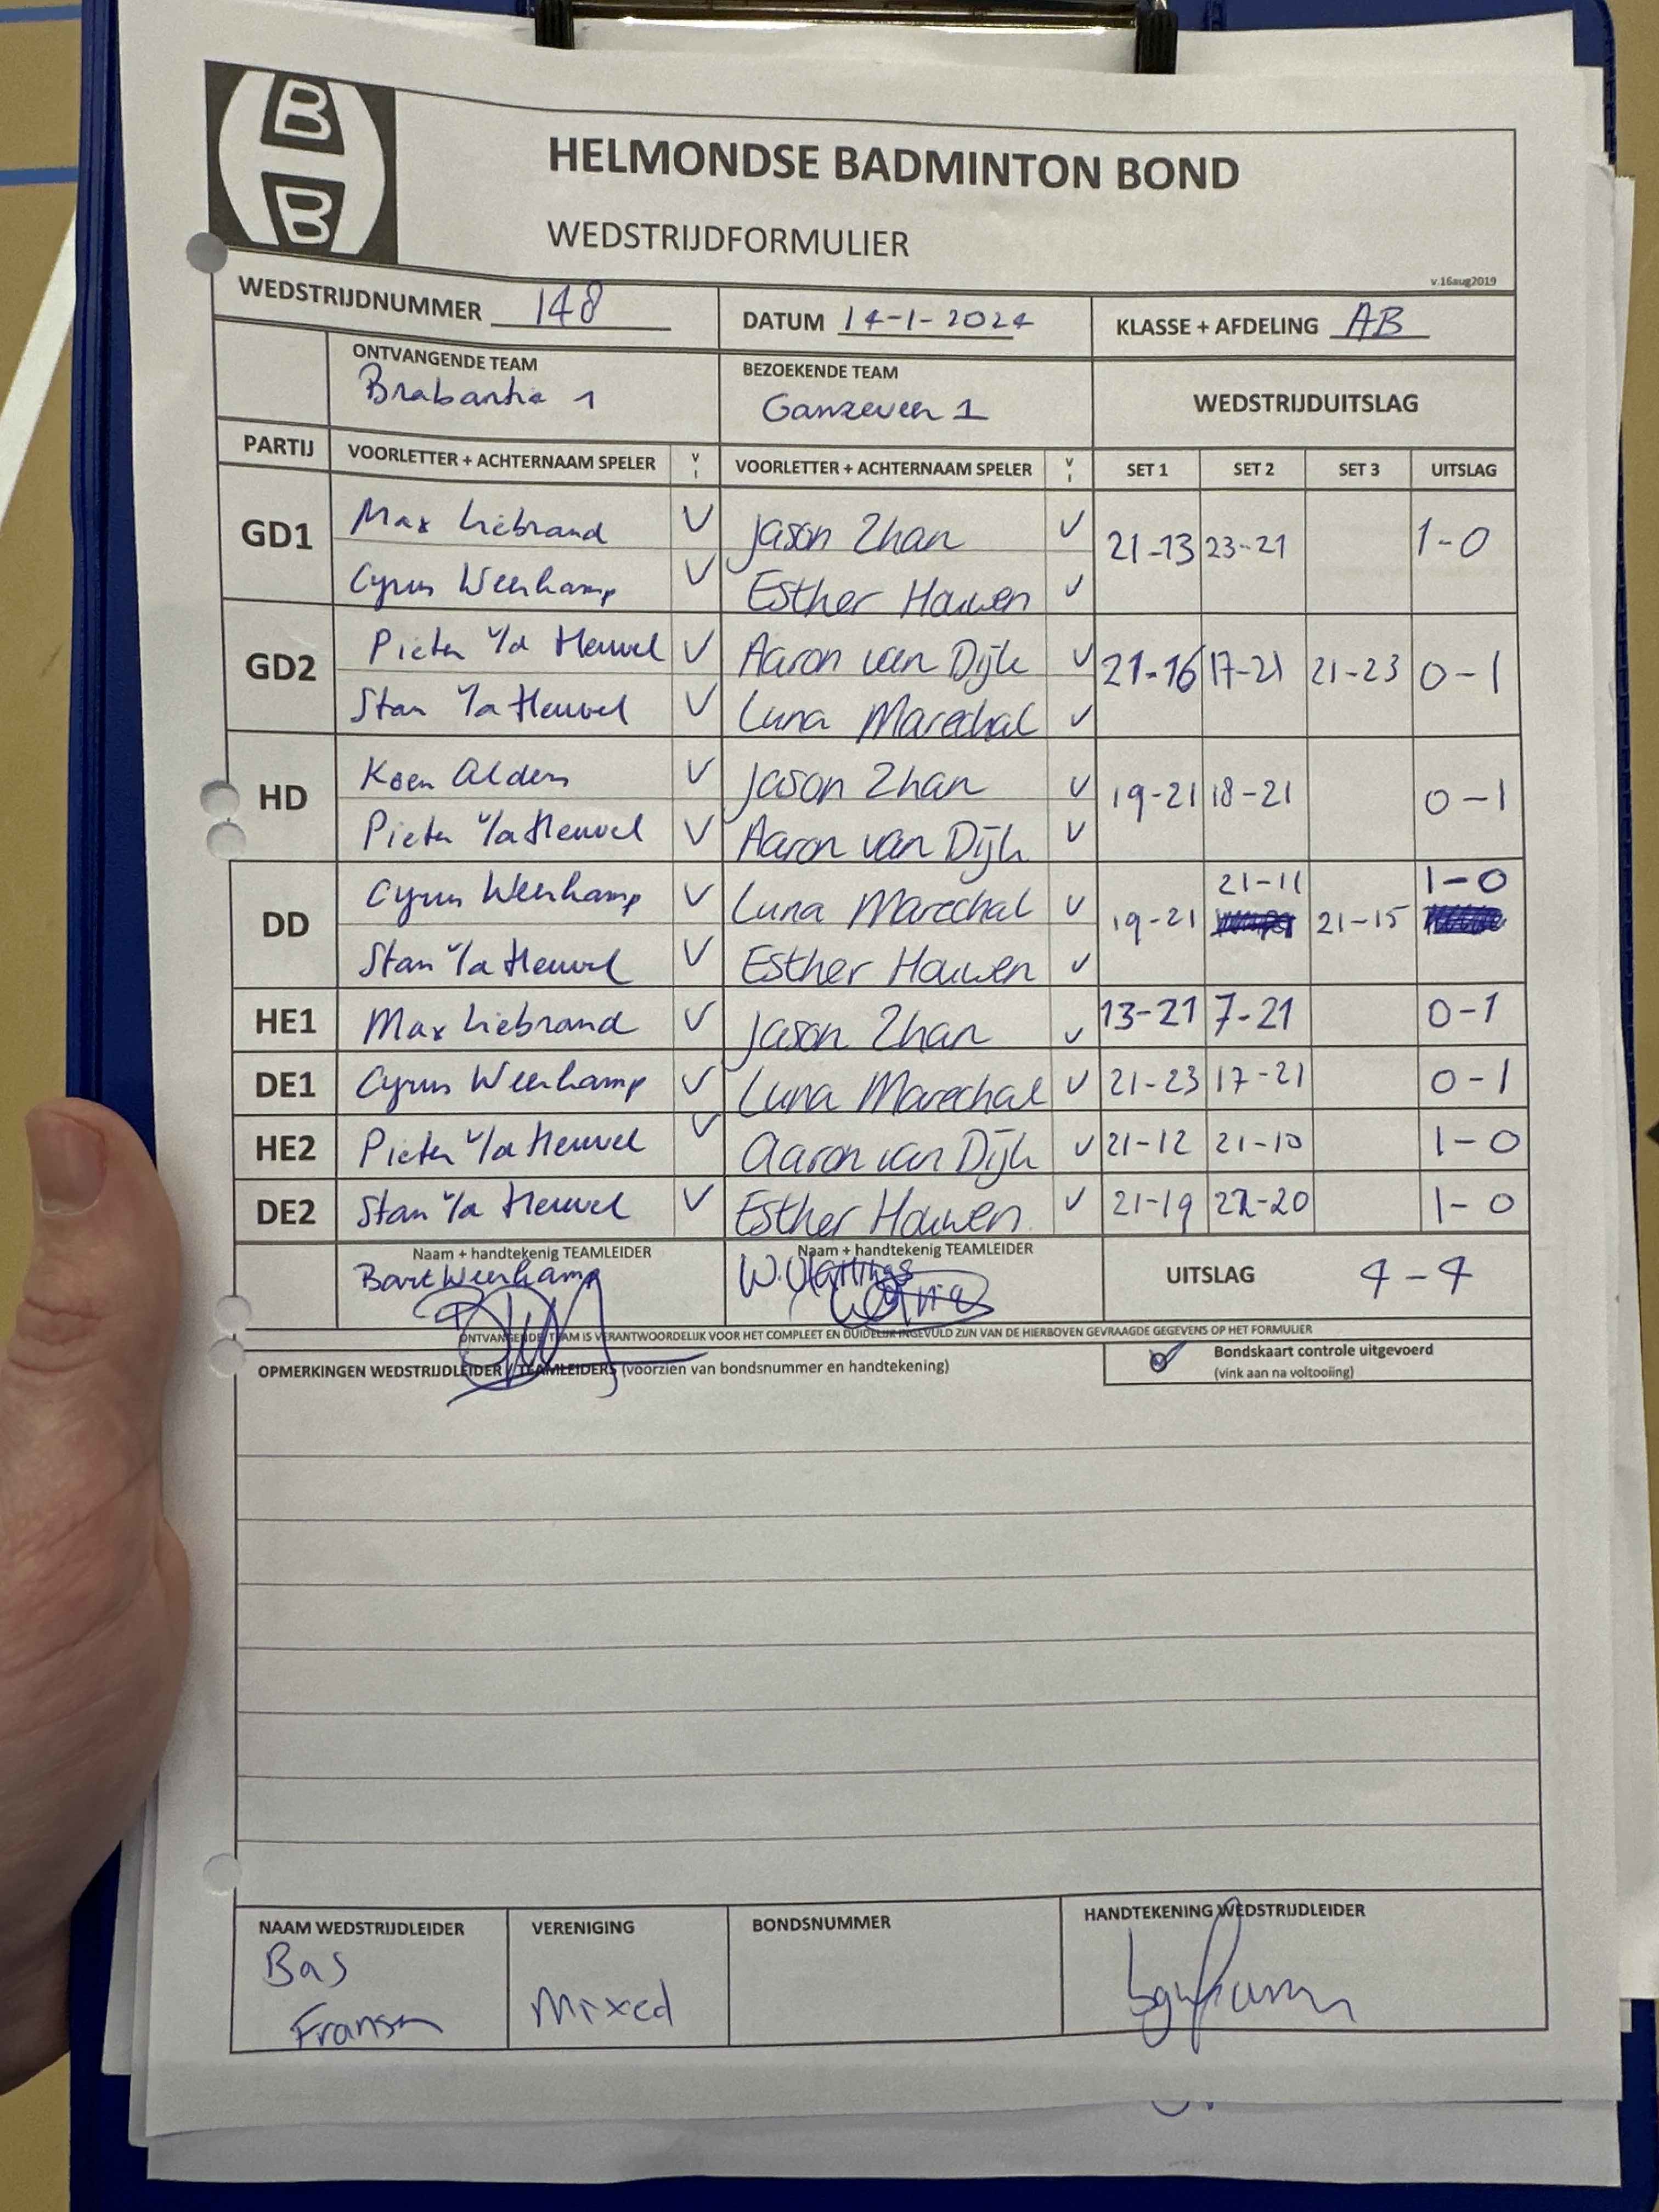 B
B
HELMONDSE BADMINTON BOND
WEDSTRIJDFORMULIER
v.16aug2019
WEDSTRIJDNUMMER 148 DATUM 14-1-2024 KLASSE + AFDELING AB
ONTVANGENDE TEAM BEZOEKENDE TEAM WEDSTRIJDUITSLAG
Brabantia 1 Ganzeveer 1
PARTIJ VOORLETTER + ACHTERNAAM SPELER V VOORLETTER + ACHTERNAAM SPELER V SET 1 SET 2 SET 3 UITSLAG
GD1 Max Liebrand V Jason Zhan V 21-13 23-21 1-0
Cyrus Weerkamp V Esther Houwen V
GD2 Pieter v/d Heuvel V Aaron van Dijk V 21-16 17-21 21-23 0-1
Stan v/d Heuvel V Luna Marechal V
HD Koen Alders V Jason Zhan V 19-21 18-21 0-1
Pieter v/d Heuvel V Aaron van Dijk V
DD Cyrus Weerkamp V Luna Marechal V 19-21 21-11 21-15 1-0
Stan v/d Heuvel V Esther Houwen V
HE1 Max Liebrand V Jason Zhan V 13-21 7-21 0-1
DE1 Cyrus Weerkamp V Luna Marechal V 21-23 17-21 0-1
HE2 Pieter v/d Heuvel V Aaron van Dijk V 21-12 21-10 1-0
DE2 Stan v/d Heuvel V Esther Houwen V 21-19 22-20 1-0
Naam + handtekenig TEAMLEIDER Naam + handtekenig TEAMLEIDER UITSLAG 4-4
Bart Weerkamp
ONTVANGENDE TEAM IS VERANTWOORDELIJK VOOR HET COMPLEET EN DUIDELIJK INGEVULD ZIJN VAN DE HIERBOVEN GEVRAAGDE GEGEVENS OP HET FORMULIER
OPMERKINGEN WEDSTRIJDLEIDER / TEAMLEIDERS (voorzien van bondsnummer en handtekening)
Bondskaart controle uitgevoerd
(vink aan na voltooiing)
NAAM WEDSTRIJDLEIDER VERENIGING BONDSNUMMER HANDTEKENING WEDSTRIJDLEIDER
Bas
Fransen Mixed